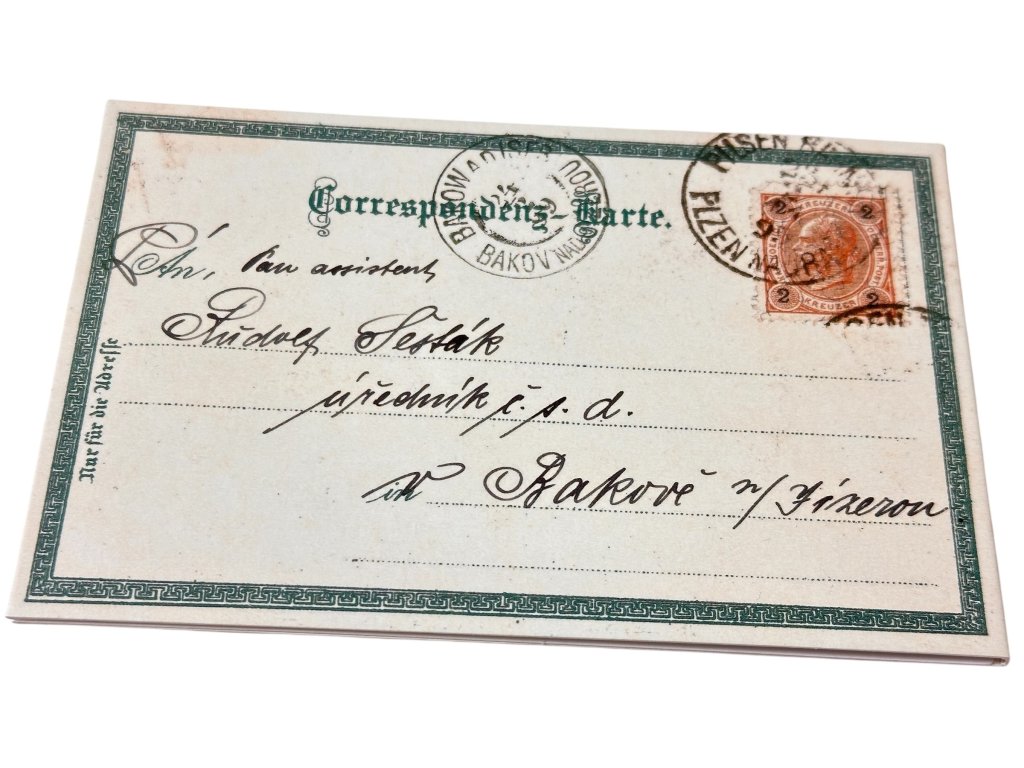 Correspondenz-Karte.
PILSEN
PLZEŇ NÁDR
BAKOW A D ISER
BAKOV NAD JIZEROU
2 KREUZER 2
2 KREUZER 2
An, Pan assistent
Rudolf Šesták
úředník č. s. d.
v Bakově n/Jizerou
Nur für die Adresse